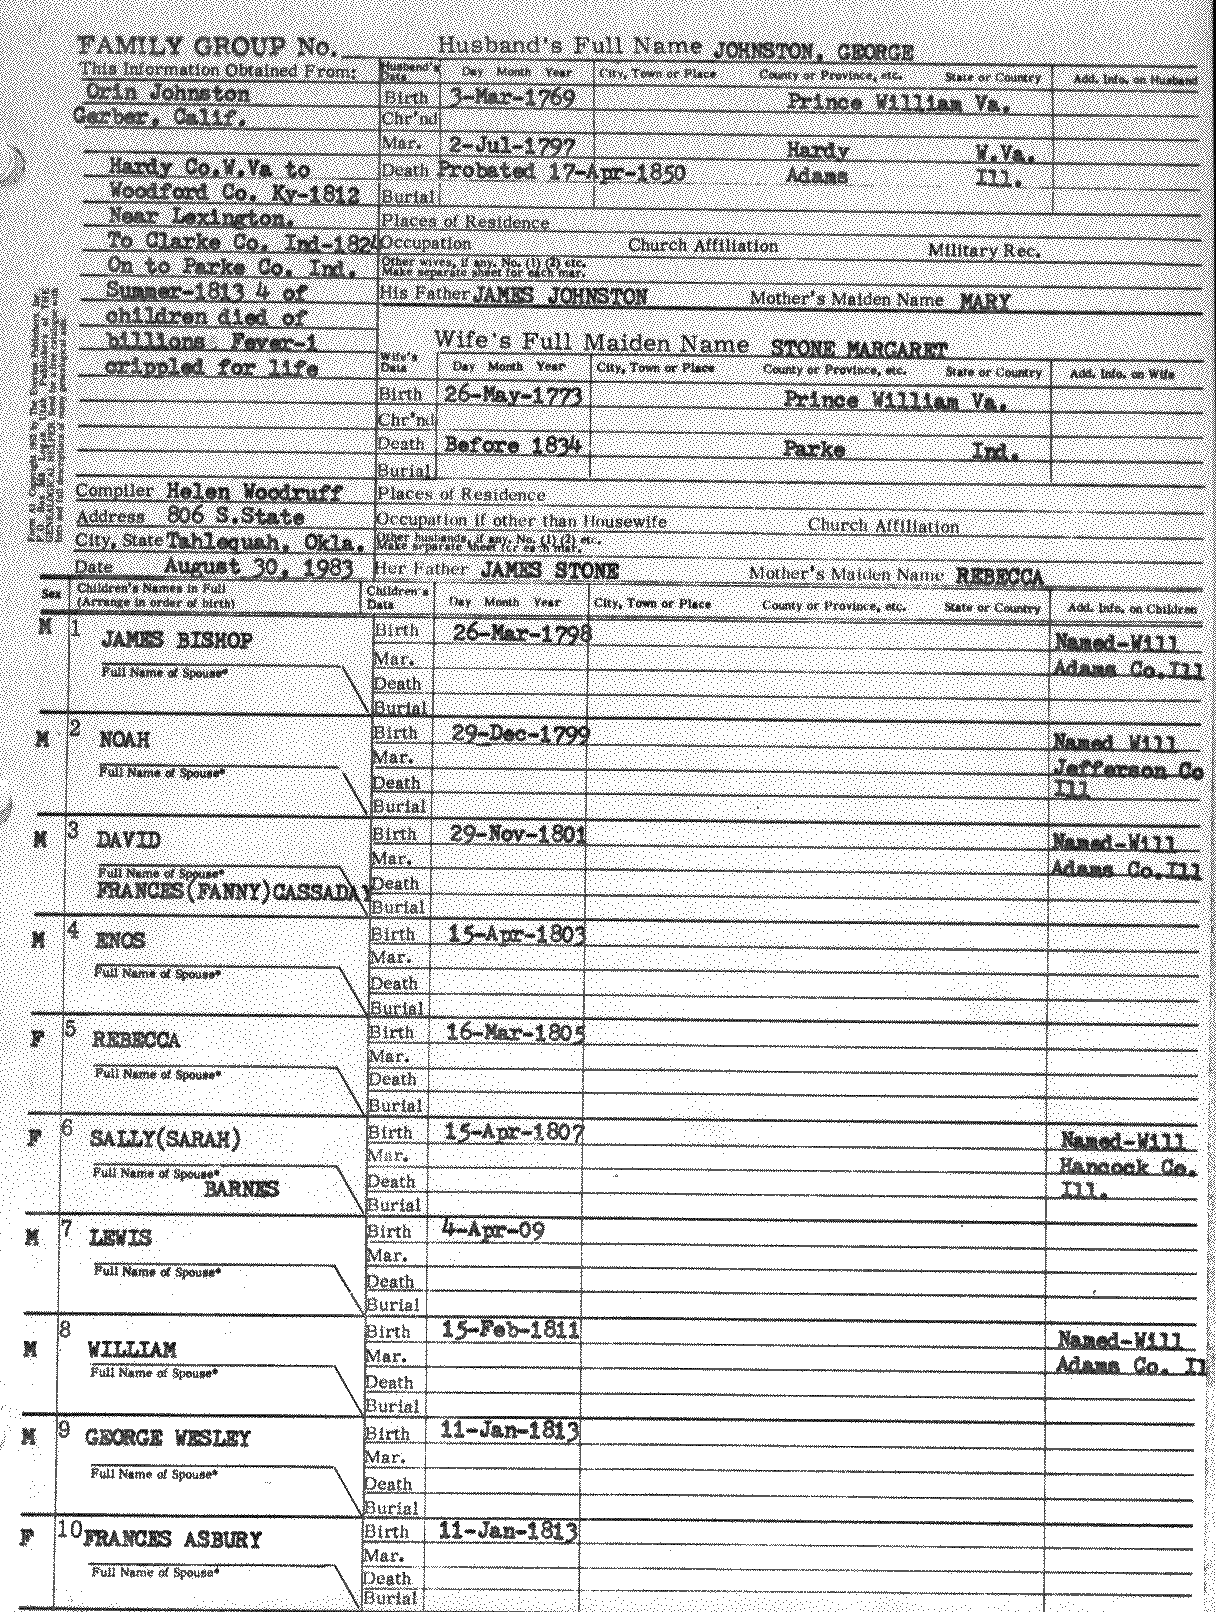 FAMILY GROUP No. Husband's Full Name JOHNSTON, GEORGE
This Information Obtained From: Husband's Data Day Month Year City, Town or Place County or Province, etc. State or Country Add. Info. on Husband
Orin Johnston Birth 3-Mar-1769 Prince William Va.
Gerber, Calif. Chr'nd
Mar. 2-Jul-1797 Hardy W.Va.
Hardy Co.W.Va to Death Probated 17-Apr-1850 Adams Ill.
Woodford Co. Ky-1812 Burial
Near Lexington. Places of Residence
To Clarke Co. Ind-1824 Occupation Church Affiliation Military Rec.
On to Parke Co. Ind. Other wives, if any, No. (1) (2) etc. Make separate sheet for each mar.
Summer-1813 4 of His Father JAMES JOHNSTON Mother's Maiden Name MARY
children died of
billions Fever-1 Wife's Full Maiden Name STONE MARGARET
crippled for life Wife's Data Day Month Year City, Town or Place County or Province, etc. State or Country Add. Info. on Wife
Birth 26-May-1773 Prince William Va.
Chr'nd
Death Before 1834 Parke Ind.
Burial
Compiler Helen Woodruff Places of Residence
Address 806 S.State Occupation if other than Housewife Church Affiliation
City, State Tahlequah, Okla. Other husbands, if any, No. (1) (2) etc. Make separate sheet for each mar.
Date August 30, 1983 Her Father JAMES STONE Mother's Maiden Name REBECCA
Sex Children's Names in Full (Arrange in order of birth) Children's Data Day Month Year City, Town or Place County or Province, etc. State or Country Add. Info. on Children
M 1 JAMES BISHOP Birth 26-Mar-1798 Named-Will
Full Name of Spouse* Mar. Adams Co.Ill
Death
Burial
M 2 NOAH Birth 29-Dec-1799 Named Will
Full Name of Spouse* Mar. Jefferson Co
Death Ill
Burial
M 3 DAVID Birth 29-Nov-1801 Named-Will
Full Name of Spouse* Mar. Adams Co.Ill
FRANCES(FANNY)CASSADAY Death
Burial
M 4 ENOS Birth 15-Apr-1803
Full Name of Spouse* Mar.
Death
Burial
F 5 REBECCA Birth 16-Mar-1805
Full Name of Spouse* Mar.
Death
Burial
F 6 SALLY(SARAH) Birth 15-Apr-1807 Named-Will
Full Name of Spouse* Mar. Hancock Co.
BARNES Death Ill.
Burial
M 7 LEWIS Birth 4-Apr-09
Full Name of Spouse* Mar.
Death
Burial
M 8 WILLIAM Birth 15-Feb-1811 Named-Will
Full Name of Spouse* Mar. Adams Co. Il
Death
Burial
M 9 GEORGE WESLEY Birth 11-Jan-1813
Full Name of Spouse* Mar.
Death
Burial
F 10 FRANCES ASBURY Birth 11-Jan-1813
Full Name of Spouse* Mar.
Death
Burial